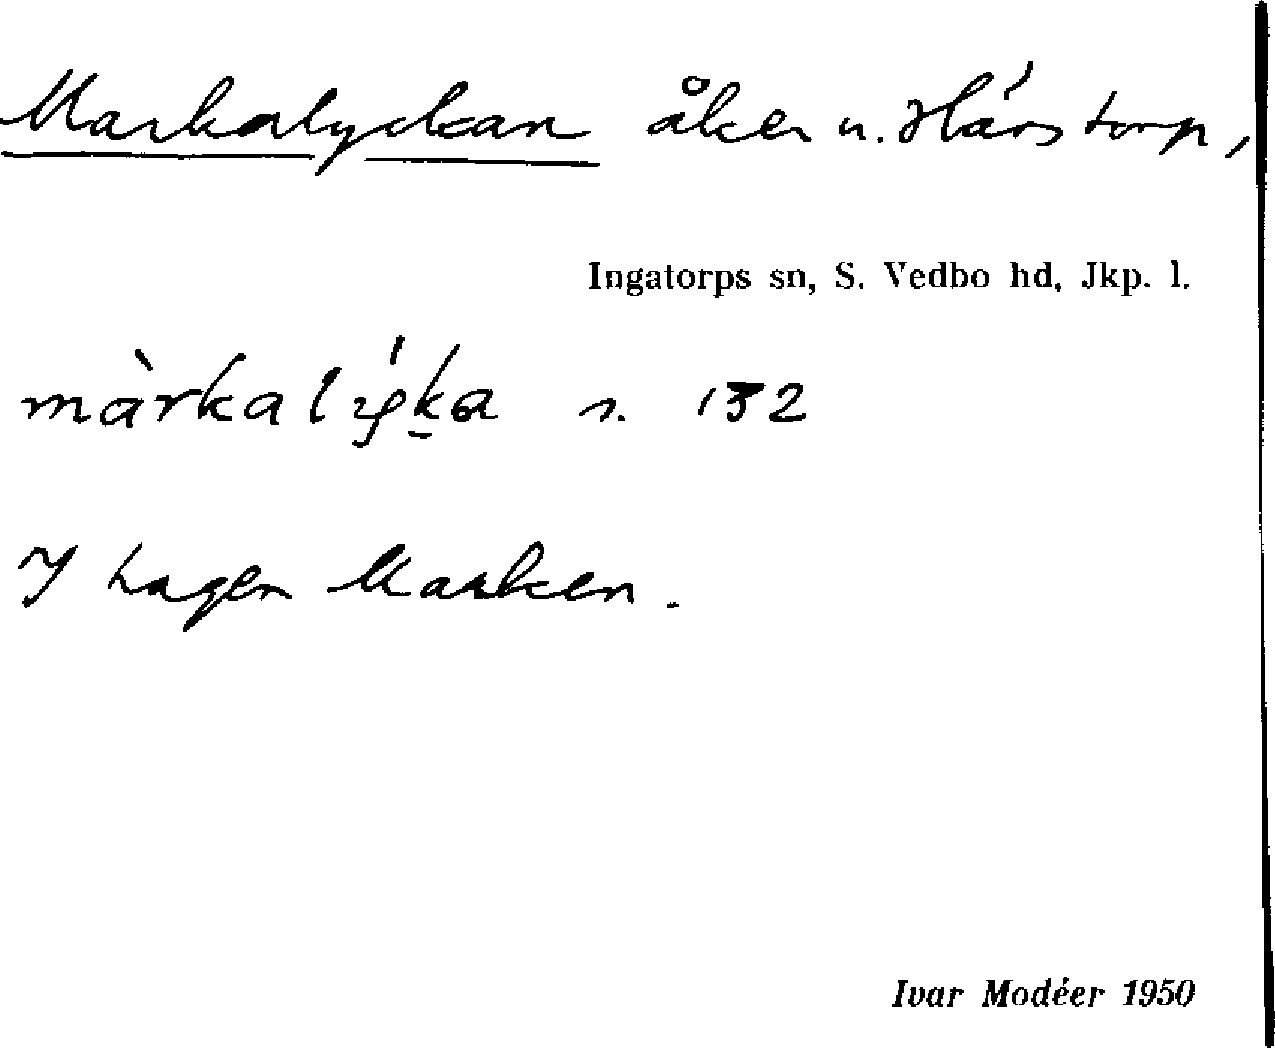 Markalyckan åker u. Hárstorp,
Ingatorps sn, S. Vedbo hd, Jkp. l.
màrkalýka s. 132
I hagen Marken.
Ivar Modéer 1950